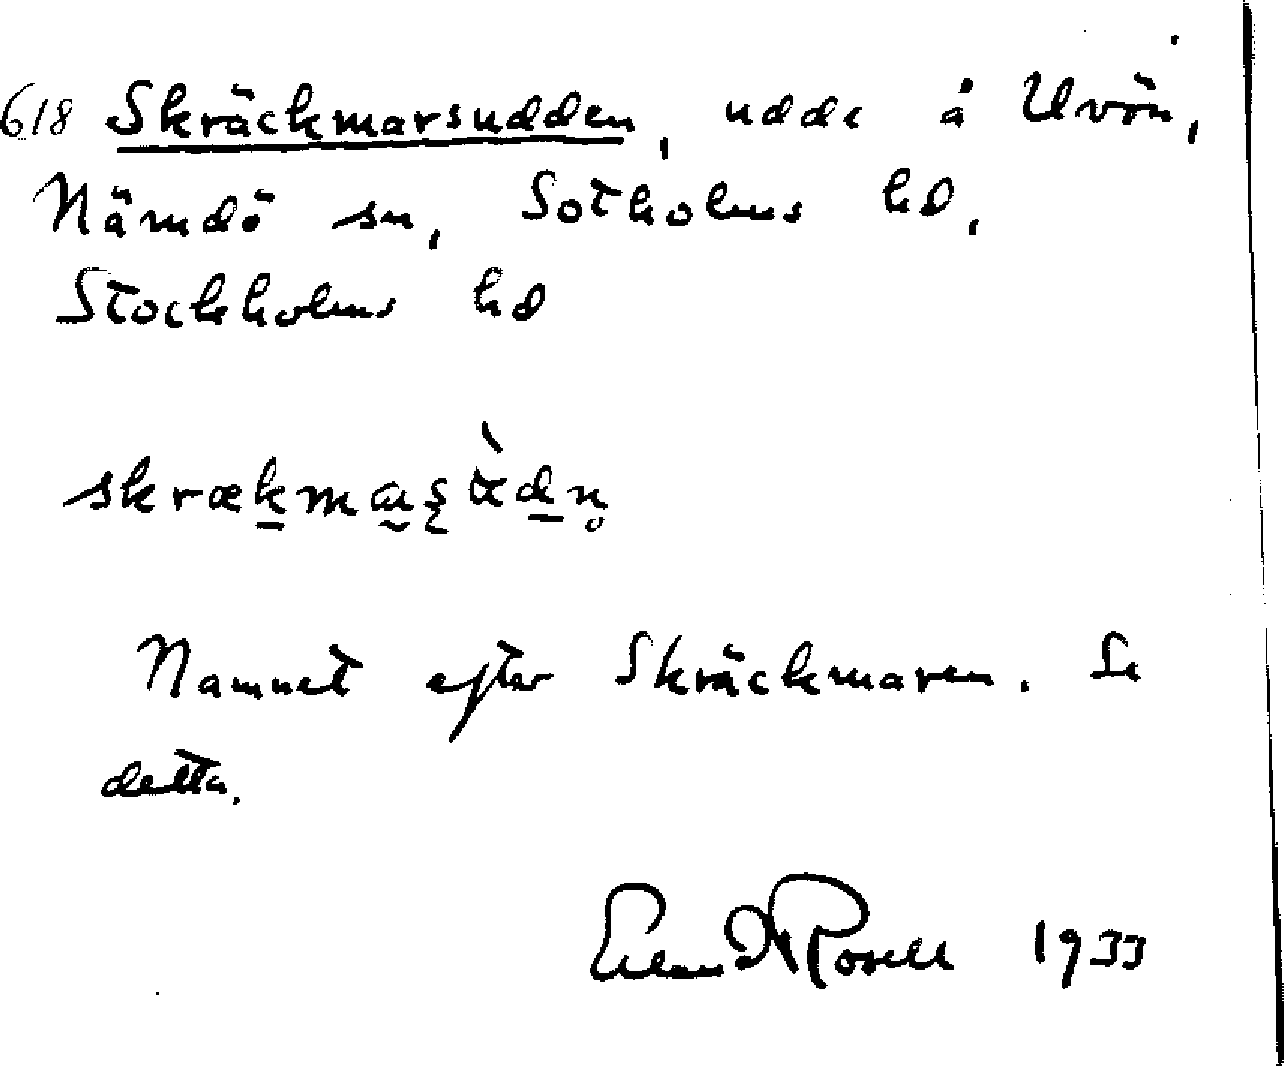 618 Skräckmarsudden, udde å Uvön,
Nämdö sn, Sotholms hd,
Stockholms hd
skrækma̰ʂ
Namnet efter Skräckmaren. Se
detta.
Rosell 1933